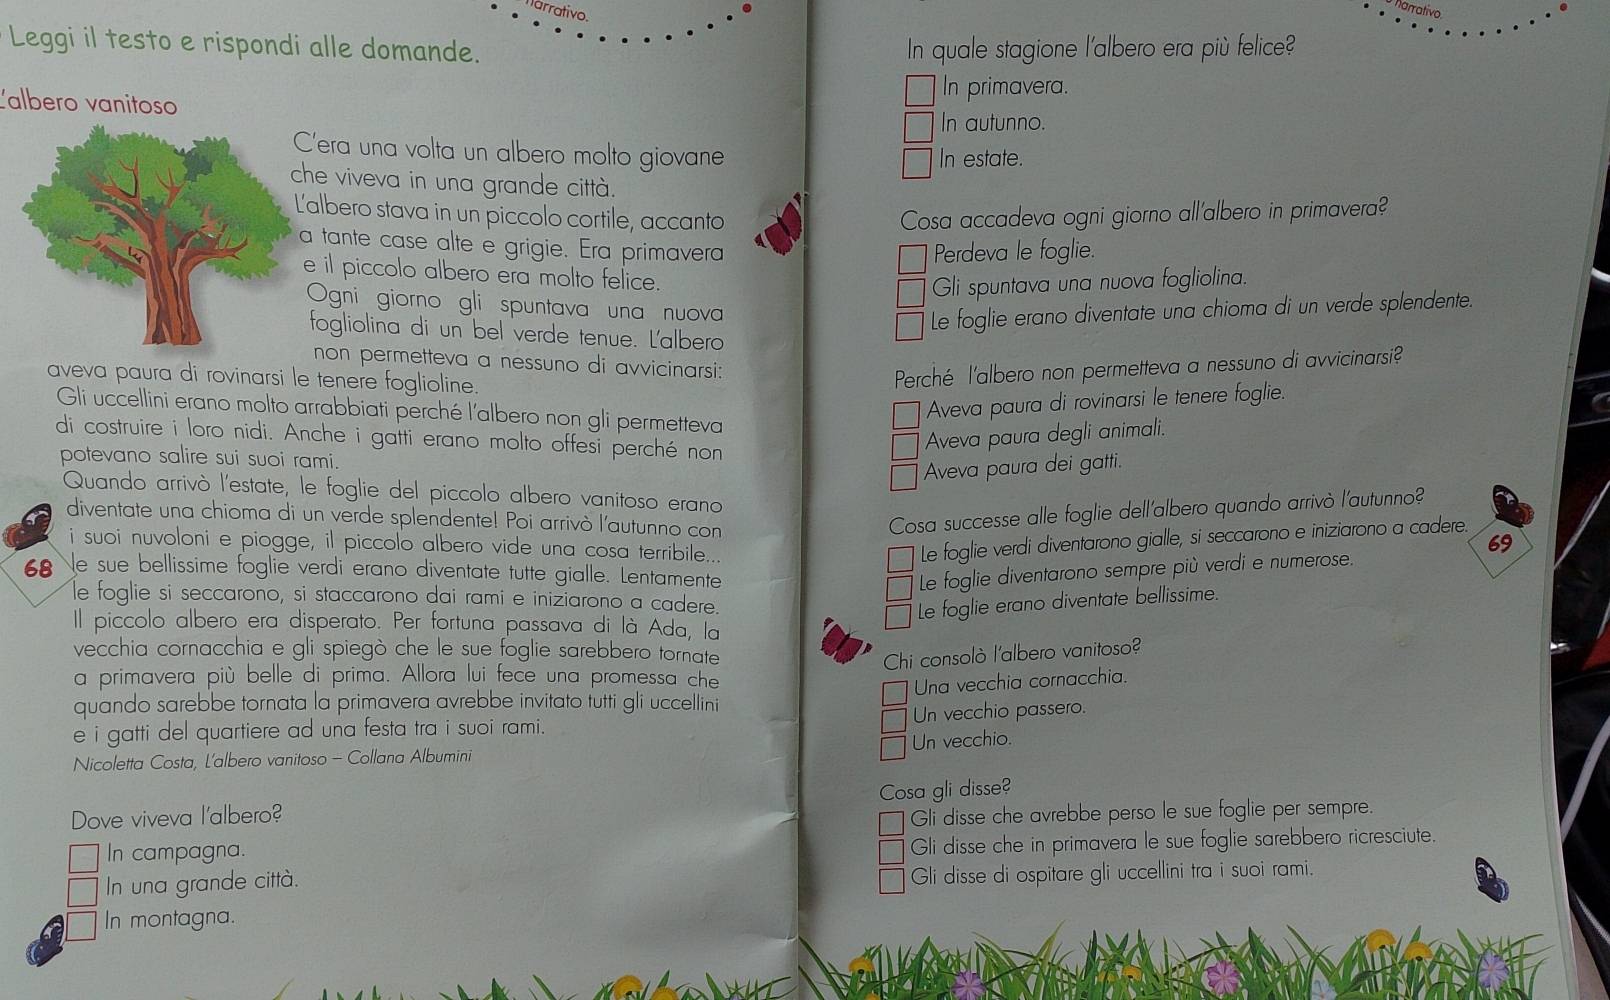 narrativo.
Leggi il testo e rispondi alle domande.
L'albero vanitoso
C'era una volta un albero molto giovane
che viveva in una grande città.
L'albero stava in un piccolo cortile, accanto
a tante case alte e grigie. Era primavera
e il piccolo albero era molto felice.
Ogni giorno gli spuntava una nuova
fogliolina di un bel verde tenue. L'albero
non permetteva a nessuno di avvicinarsi:
aveva paura di rovinarsi le tenere foglioline.
Gli uccellini erano molto arrabbiati perché l'albero non gli permetteva
di costruire i loro nidi. Anche i gatti erano molto offesi perché non
potevano salire sui suoi rami.
Quando arrivò l'estate, le foglie del piccolo albero vanitoso erano
diventate una chioma di un verde splendente! Poi arrivò l'autunno con
i suoi nuvoloni e piogge, il piccolo albero vide una cosa terribile...
le sue bellissime foglie verdi erano diventate tutte gialle. Lentamente
le foglie si seccarono, si staccarono dai rami e iniziarono a cadere.
Il piccolo albero era disperato. Per fortuna passava di là Ada, la
vecchia cornacchia e gli spiegò che le sue foglie sarebbero tornate
a primavera più belle di prima. Allora lui fece una promessa che
quando sarebbe tornata la primavera avrebbe invitato tutti gli uccellini
e i gatti del quartiere ad una festa tra i suoi rami.
Nicoletta Costa, L'albero vanitoso – Collana Albumini
Dove viveva l'albero?
In campagna.
In una grande città.
In montagna.
68
narrativo
In quale stagione l'albero era più felice?
In primavera.
In autunno.
In estate.
Cosa accadeva ogni giorno all'albero in primavera?
Perdeva le foglie.
Gli spuntava una nuova fogliolina.
Le foglie erano diventate una chioma di un verde splendente.
Perché l'albero non permetteva a nessuno di avvicinarsi?
Aveva paura di rovinarsi le tenere foglie.
Aveva paura degli animali.
Aveva paura dei gatti.
Cosa successe alle foglie dell'albero quando arrivò l'autunno?
Le foglie verdi diventarono gialle, si seccarono e iniziarono a cadere.
Le foglie diventarono sempre più verdi e numerose.
Le foglie erano diventate bellissime.
Chi consolò l'albero vanitoso?
Una vecchia cornacchia.
Un vecchio passero.
Un vecchio.
Cosa gli disse?
Gli disse che avrebbe perso le sue foglie per sempre.
Gli disse che in primavera le sue foglie sarebbero ricresciute.
Gli disse di ospitare gli uccellini tra i suoi rami.
69